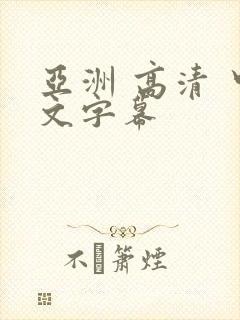 亞洲 高清
文字幕
不 簫煙